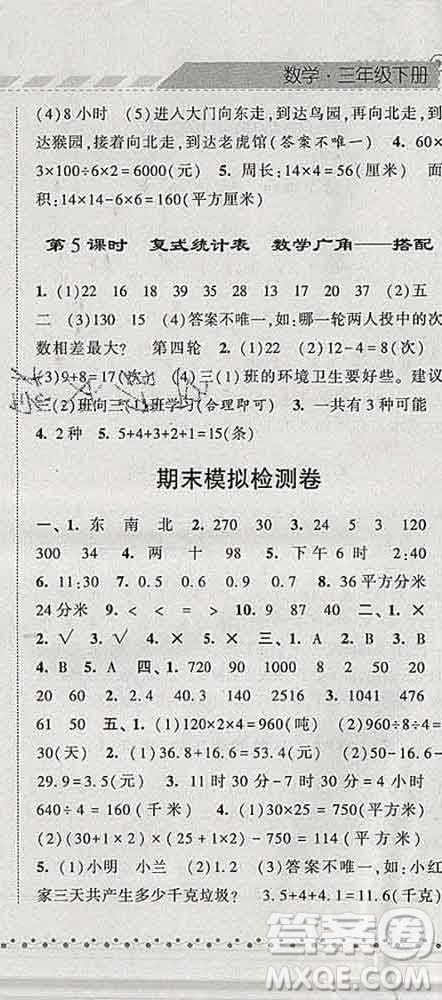 数学·三年级下册
(4)8小时 (5)进入大门向东走,到达鸟园,再向北走,到
达猴园,接着向北走,到达老虎馆(答案不唯一) 4. 60
3×100÷6×2=6000(厘米) 5. 周长:14×4=56(厘米) 面
积:14×14-6×6=160(平方厘米)
第5课时 复式统计表 数学广角——搭配
1. (1)22 16 18 39 35 28 13 17 20 37 (2)五
二 (3)130 15 (4)答案不唯一,如:哪一轮两人投中的次
数相差最大? 第四轮 2. (1)22 (2)12-4=8(
(3)9+8=17(次) (4)三(1)班的环境卫生要好些。建议
三(2)班向三(1)班学习(合理即可) 3. 一共有3种可能
4. 2种 5. 5+4+3+2+1=15(条)
期末模拟检测卷
一、1. 东 南 北 2. 270 30 3. 24 5 3 120
300 34 4. 两 十 98 5. 下午6时 2:40
6. 11:30 7. 0.5 0.6 0.9 8. 36平方分米
24分米 9. < < > < 10. 9 87 40 二、1. ×
2. √ 3. √ 4. × 5. × 三、1. B 2. A 3. B
4. B 5. A 四、1. 720 90 100 8 2 50 20
20 60 50 2. 2.4 9.3 38 7.8 3. 1041 476
61 50 五、1. (1)120×2×4=960(吨) (2)960÷8÷4=
30(天) 2. (1)36.8+16.6=53.4(元) (2)50-16.6-
29.9=3.5(元) 3. 11时30分-7时30分=4小时
640÷4=160(千米) 4. (1)30×25=750(平方米)
(2)(30+1)×2+(25+1)×2=114(块)
5. (1)小明 小兰 (2)1.2 (3)答案不唯一,如:小红
家三天共产生多少千克垃圾? 3.5+4+4.1=11.6(千克)
答案圈